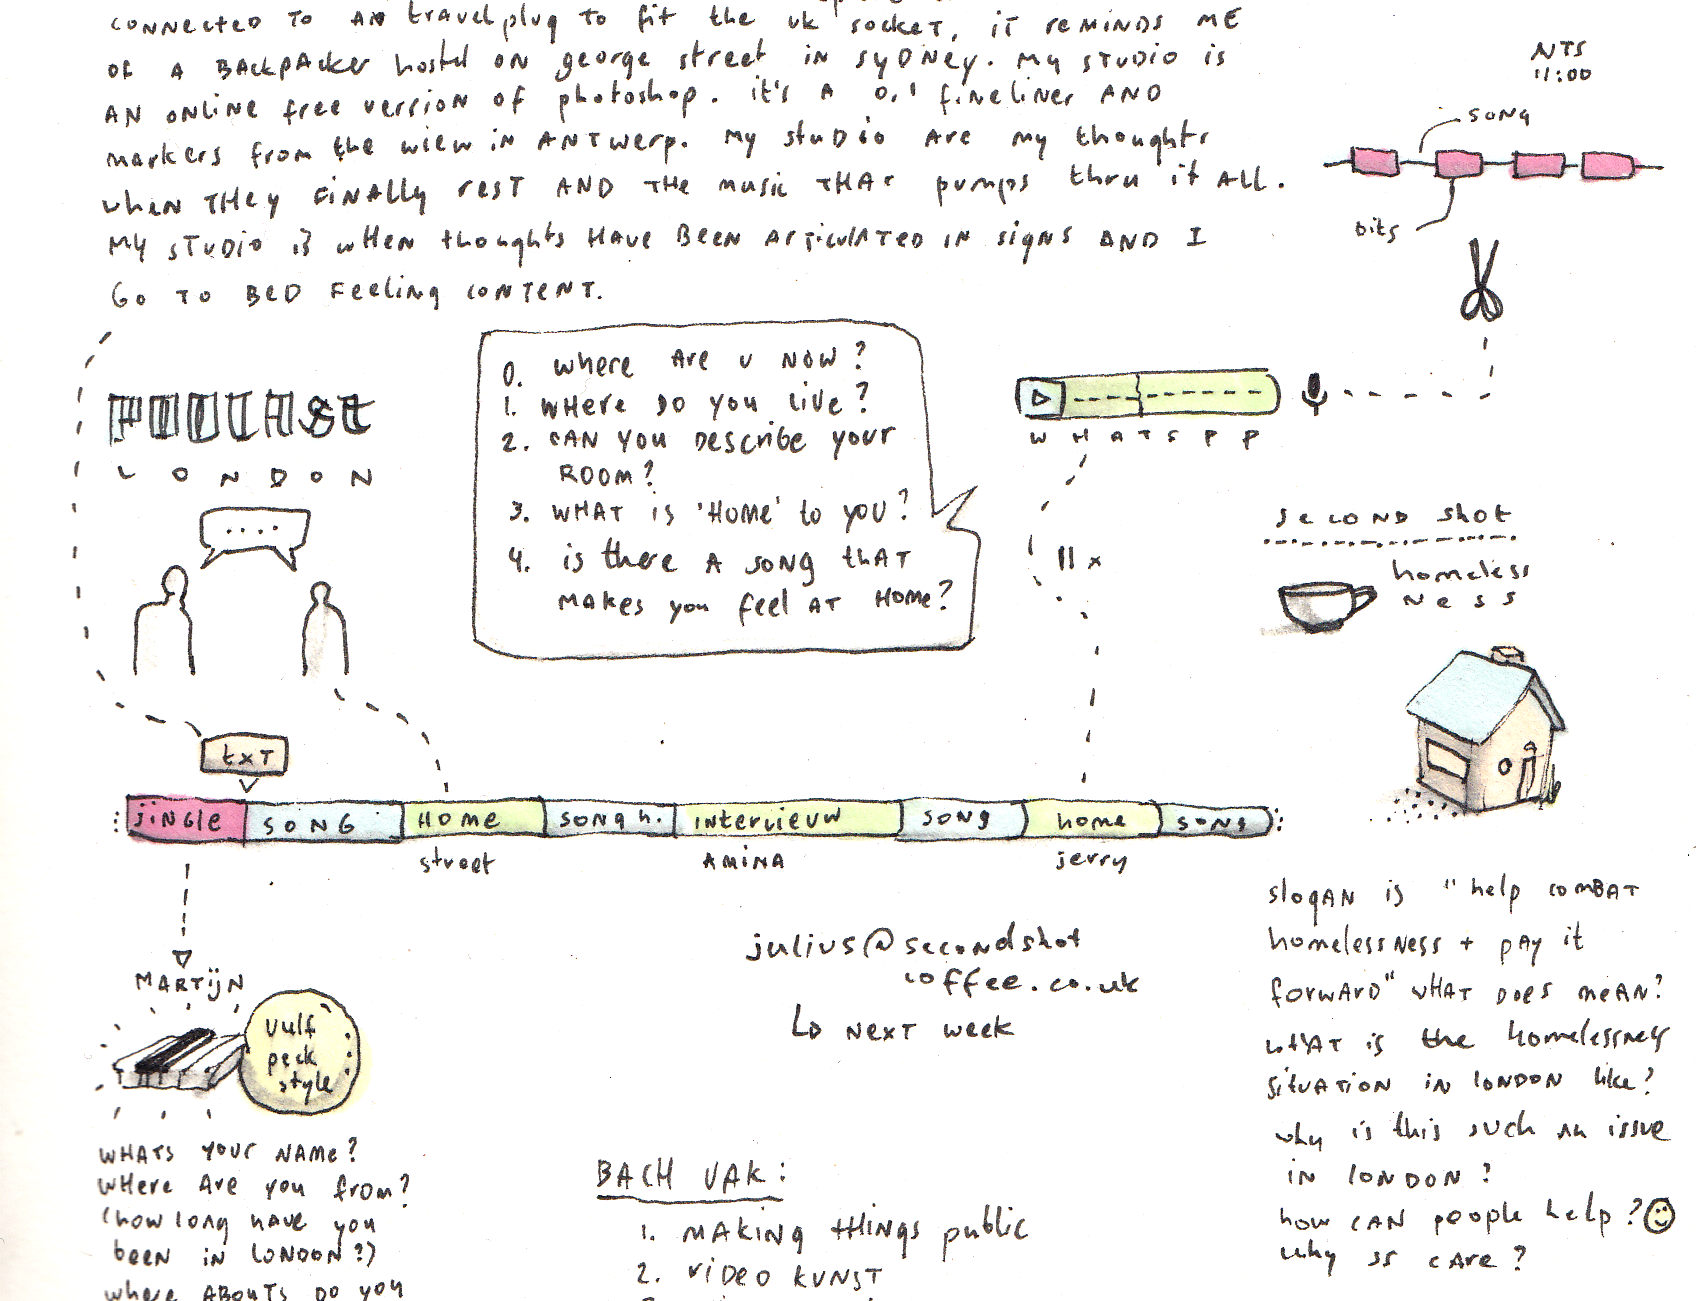 CONNECTED TO AN travelplug TO fit the UK socket, it REMINDS ME
OF A BACKPACKER hostel ON george street in SYDNey. My STUDIO is
AN ONLINE free version of photoshop. it's A 0,1 fineliner AND
markers from the wiew in ANTwerp. My studio ARE my thoughts
when THEY FINALLY resT AND THE music THAT pumps thru it ALL.
My STUDIO is WHEN thoughts HAVE BEEN ARTICULATED IN signs AND I
GO TO BED Feeling CONTENT.
NTS
11:00
song
bits
PODCAST
LONDON
....
0. where Are U NOW?
1. WHERE DO YOU live?
2. CAN YOU DEScribe YOUR
ROOM?
3. WHAT is 'HOME' to YOU?
4. is there A SONG tHAT
MAKES you feel AT HOME?
WHATSPP
11 x
second shot
homeless
ness
txT
jiNGLE
SONG
HOME
SONG h.
INterviEUW
SONG
home
song
street
AMINA
jerry
julius@secondshot
coffee.co.uk
NEXT week
MARTijN
vulf
peck
style
slogAN is "help COMBAT
homelessness + pay it
forwARD" WHAT DOES meAN?
wHAT is the homelessness
SituATION in LONDON like?
why is this such AN issue
IN LONDON?
how CAN people help?
why ss cAre?
WHATS YOUR NAMe?
WHere Are you from?
(how long have you
been in LONDON?)
where ABOUTS DO YOU
BACH VAK:
1. MAKING thiNgs public
2. VIDEO KUNST